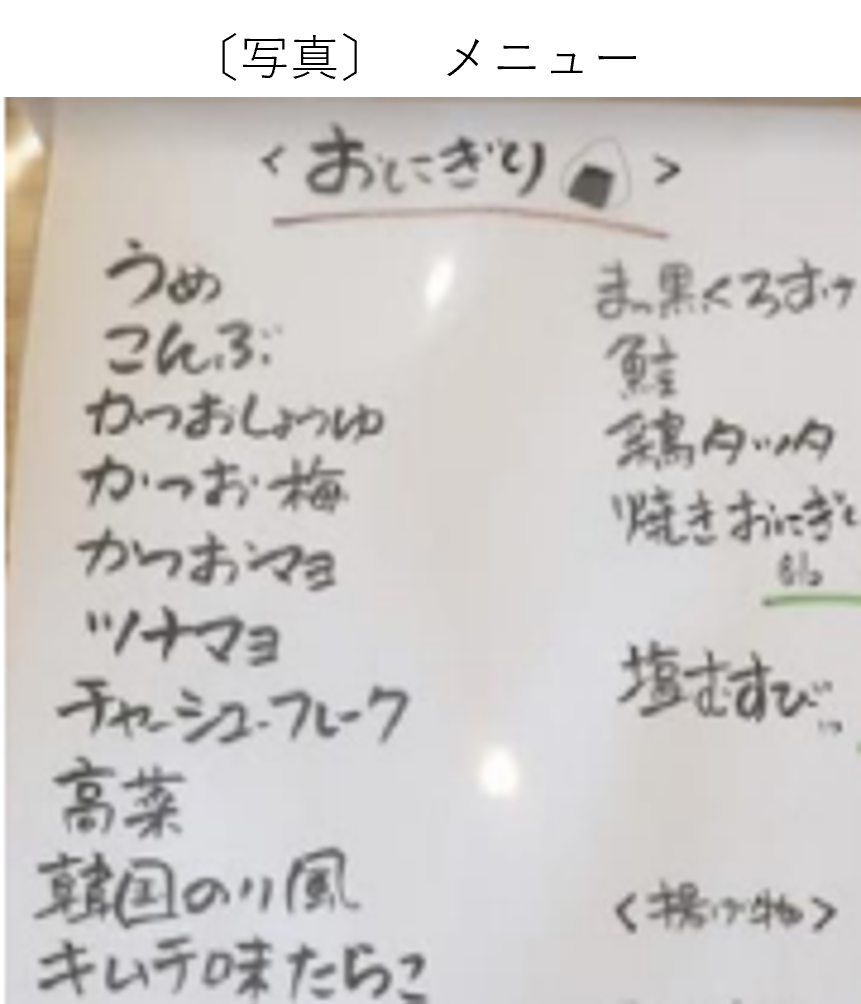 〔写真〕 メニュー
<おにぎり>
うめ
こんぶ
かつおしょうゆ
かつお梅
かつおマヨ
ツナマヨ
チャーシューフレーク
高菜
韓国のり風
キムチ味たらこ
まっ黒くろすけ
鮭
鶏タツタ
焼きおにぎり
塩むすび
<揚げ物>